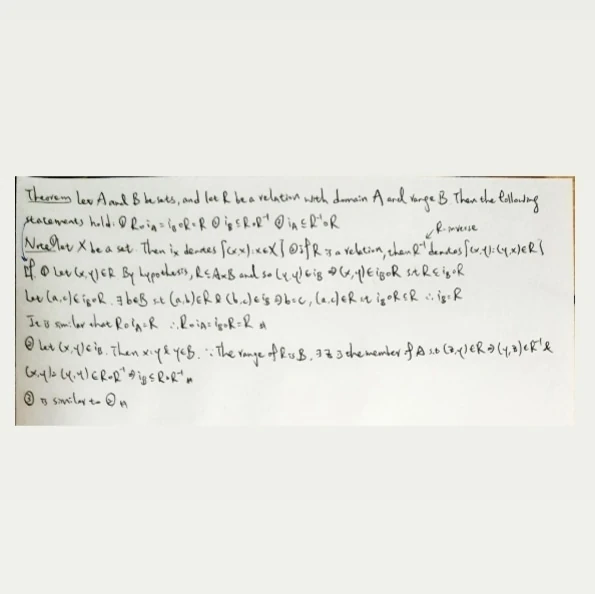 Theorem Let A and B be sets, and let R be a relation with domain A and range B Then the following
statements hold: ① R∘i_A = i_B∘R = R ② i_B ⊆ R∘R⁻¹ ③ i_A ⊆ R⁻¹∘R
R-inverse
Note ① Let X be a set. Then i_x denotes {(x,x):x∈X} ② if R is a relation, then R⁻¹ denotes {(x,y):(y,x)∈R}
pf. ① Let (x,y)∈R By hypothesis, R⊆A×B and so (y,y)∈i_B ⇒ (x,y)∈i_B∘R s.t R⊆i_B∘R
Let (a,c)∈i_B∘R. ∃b∈B s.t (a,b)∈R & (b,c)∈i_B ⇒ b=c, (a,c)∈R s.t i_B∘R⊆R ∴ i_B∘R
It is similar that R∘i_A=R ∴ R∘i_A=i_B∘R=R
② Let (x,y)∈i_B. Then x=y & y∈B. ∵ The range of R is B, ∃z the member of A s.t (z,y)∈R ⇒ (y,z)∈R⁻¹ &
(x,y)=(y,y)∈R∘R⁻¹ ⇒ i_B⊆R∘R⁻¹
③ is similar to ②